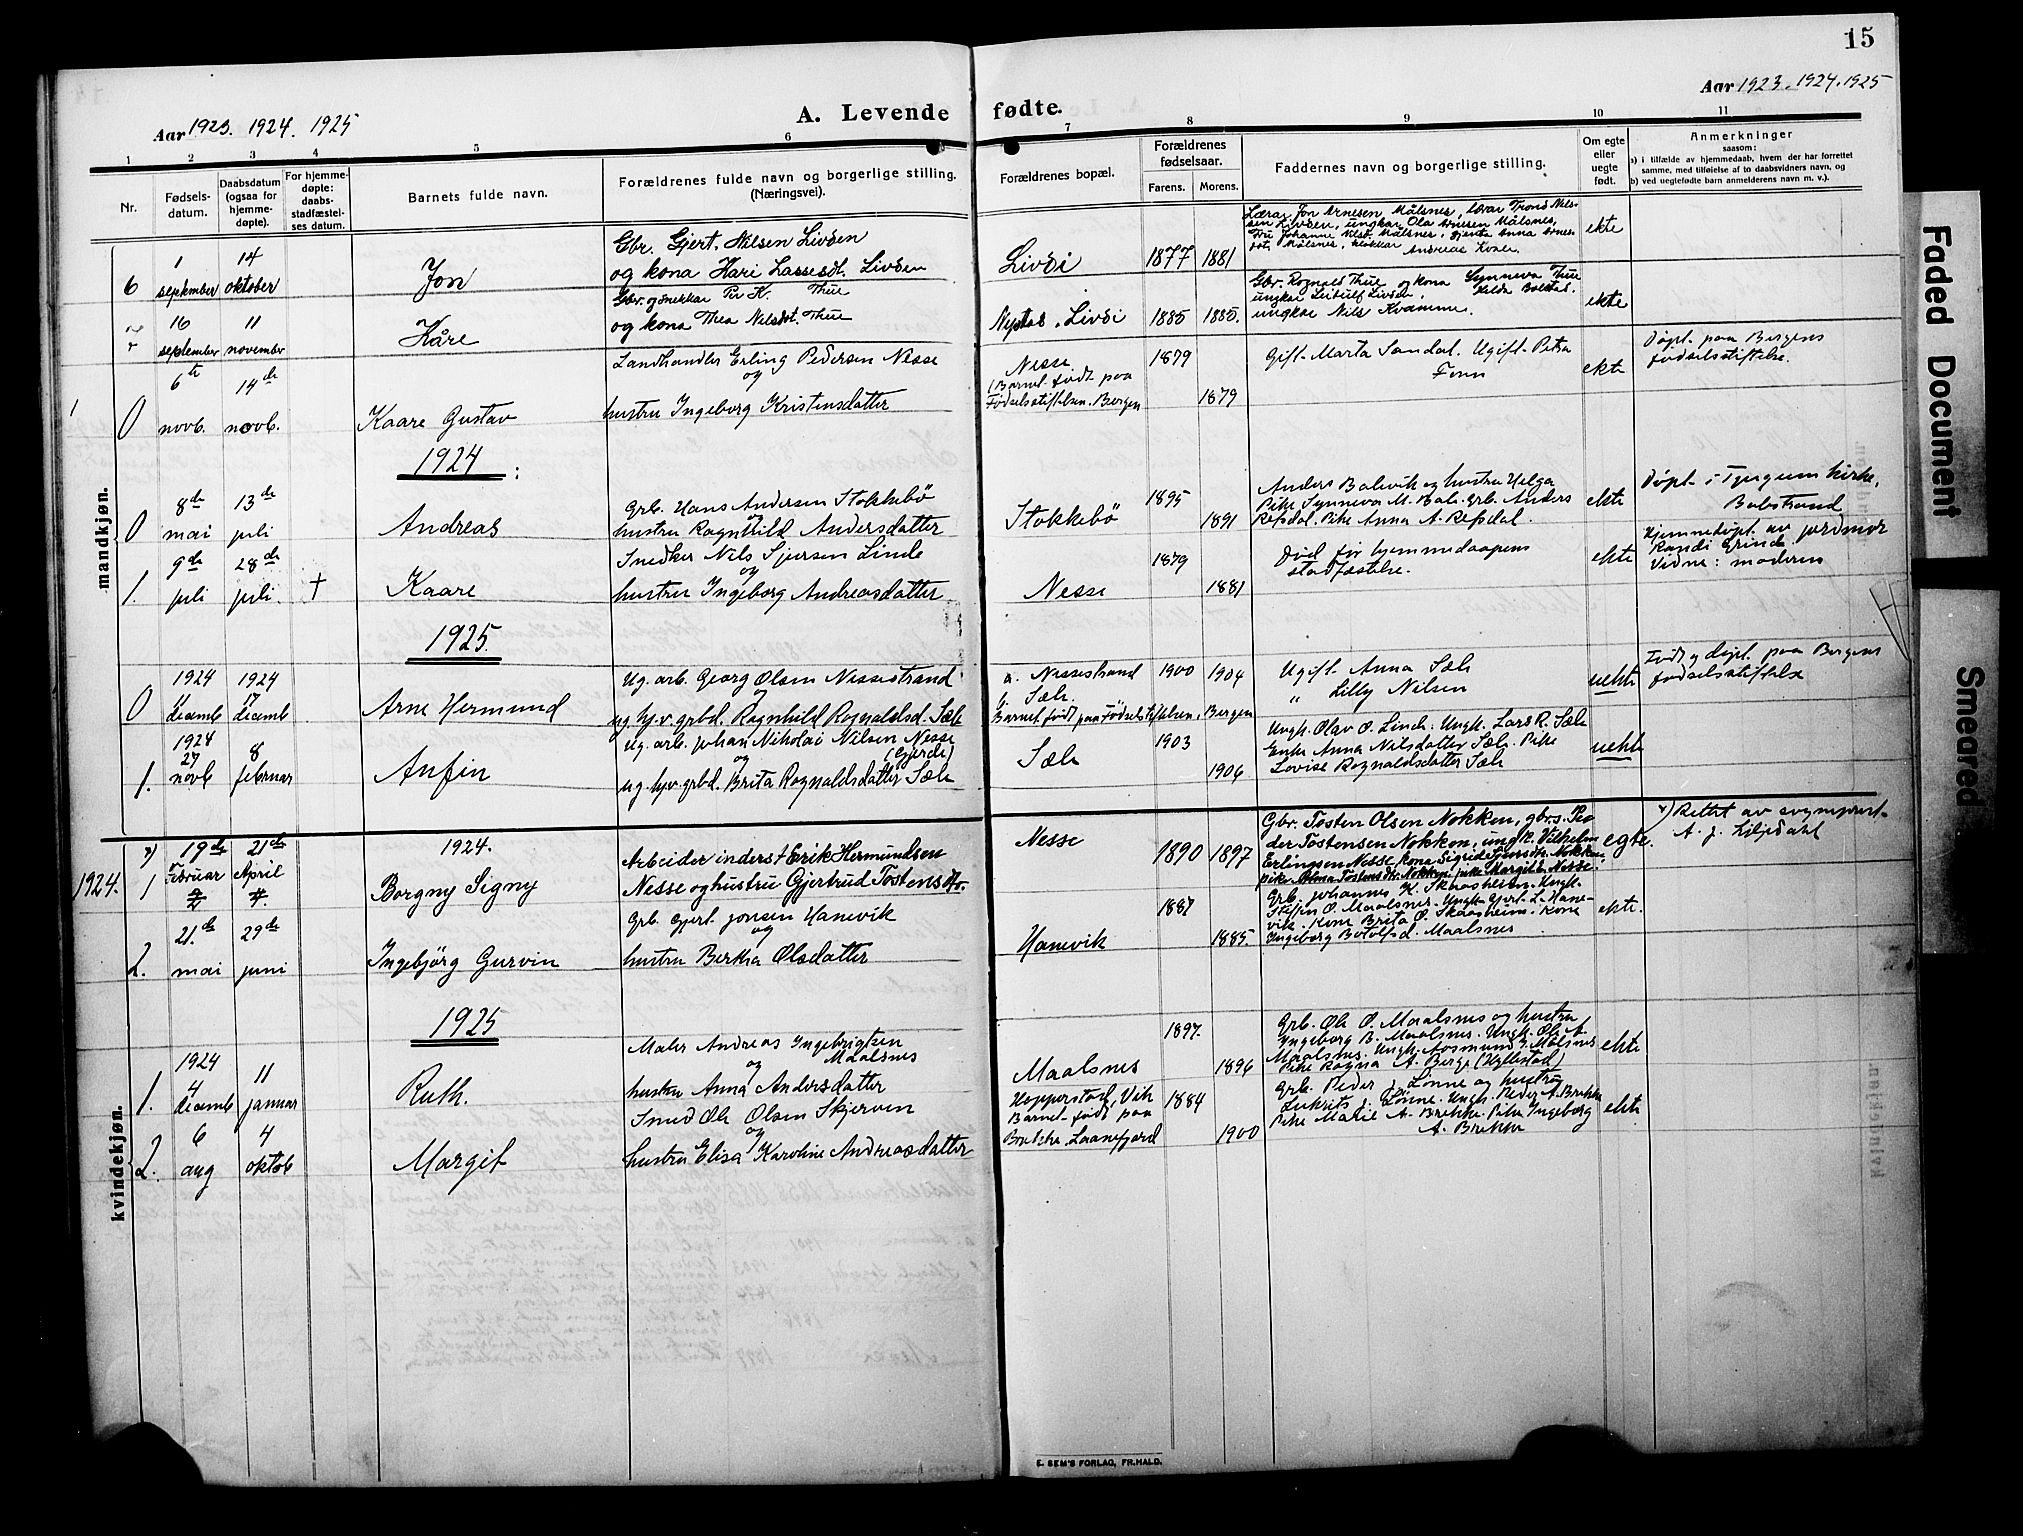 15
Aar 1923. 1924. 1925
A. Levende fødte.
Aar 1923. 1924. 1925
1 2 3 4 5 6 7 8 9 10 11
Nr.
Fødsels-
datum.
Daabsdatum
(ogsaa for
hjemme-
døpte).
For hjemme-
døpte:
daabs-
stadfæstel-
ses datum.
Barnets fulde navn.
Forældrenes fulde navn og borgerlige stilling.
(Næringsvei).
Forældrenes bopæl.
Forældrenes
fødselsaar.
Farens. Morens.
Faddernes navn og borgerlige stilling.
Om egte
eller
uegte
født.
Anmerkninger
saasom:
a) i tilfælde av hjemmedaab, hvem der har forrettet
samme, med tilføielse af to daabsvidners navn, og
b) ved uegtefødte barn anmelderens navn m. v.).
mandkjøn.
6
1
september
14
oktober
Jon
Gbr. Gjert. Nilsen Livden
og kona Kari Lassesdt. Livden
Livdi
1877 1881
Lærar Jon Arnesen Målsnes, lærar Trond Nils-
sen Livden, ungkar Ola Arnesen Målsnes,
fru Johanne Nilsd. Målsnes, gjenta Anna Arnes-
dot. Målsnes, klokkar
Andreas Kvale
ekte
7
16
september
11
november
Kåre
Gbr. og snekkar Per K. Thue
og kona Thea Nilsdot. Thue
Livdi
1885 1885.
Gbr. Rognald Thue og kona Synneva Thue
ungkar Leidulf Livden, Kilda Bolstad.
ungkar Nils Kvamme.
ekte
0
6te
novb.
14de
novb.
Kaare Gustav
Landhandler Erling Pedersen Nesse
og
hustru Ingeborg Kristensdatter
Nesse
(Barnet født paa
Fødselsstiftelsen. Bergen
1879
1879
Gift. Marta Sandal. Ugift. Petra
Fonn
ekte
Døpt paa Bergens
fødselsstiftelse.
1924:
0
8de
mai
13de
juli
Andreas
Grb. Hans Andersen Stokkebö
og
hustru Ragnhild Andersdatter
Stokkebö
1895
1891
Anders Balevik og hustru Helga
Pike Synneva M. Bale. Grb. Anders
Refsdal. Pike Anna A. Refsdal.
ekte
Døpt i Tjugum kirke,
Balestrand
1.
9de
juli
28de
juli.
+
Kaare
Snedker Nils Sjursen Linde
og
hustru Ingeborg Andreasdatter
Nesse
1879
1881
Död før hjemmedaapens
stadfæstelse.
ekte
Hjemmedøpt av jordmor
Randi Grinde
Vidne: moderen
1925.
0
1924
11
decemb
1924
17
decemb
Arne Hermund
Ug. arb. Georg Olsen Nessestrand
og
ug. hj.v. grbd. Ragnhild Rognaldsd. Sæle
a. Nessestrand
b. Sæle.
Barnet født paa Fødselsstiftelsen, Bergen
1900 1904
Ugift. Anna Sæle
" Lilly Nilsen
uekte
Født og døpt paa Bergens
fødselsstiftelse
1.
1924
27
novb
8
februar
Anfin
Ug. arb. Johan Nikolai Nilsen Nesse
og (Gjerde)
ug. hjv. grbd. Brita Rognaldsdatter Sæle
Sæle
1903
1906
Ungk. Olav O. Linde. Ungk. Lars R. Sæle
Enke Anna Nilsdatter Sæle. Pike
Lovise Rognaldsdatter Sæle
uekte
kvindekjøn.
1924.
1
19de
Februar
21de
April
1924.
Borgny Signy
Arbeider inderst Erik Hermundsen
Nesse og hustru Gjertrud Tostensdtr.
Nesse
1890 1897
Gbr. Tosten Olsen Nokken, gbr.s. Pe-
der Tostensen Nokken, ungk. Vilhelm
Erlingsen Nesse, kona Sigrid Nokken
pike Alma Tostensdtr. Nokken, pike Margit Nesse.
egte.
Rettet av sogneprest
A. J. Liljedahl
2.
21.de
mai
29de
juni
Ingebjörg Gurvin
Grb. Gjert Jonsen Hanevik
og
hustru Bertha Olsdatter
Hanevik
1887
1885.
Grb. Johannes K. Skaasheim. Ungk.
Steffen O. Maalsnes. Ungk. Gjert L. Hane-
vik. Kone Brita O. Skaasheim. Kone
Ingeborg Botolfsd. Maalsnes
ekte.
1925
1.
1924
4
decemb
11
januar
Ruth.
Maler Andreas Ingebrigtsen
og Maalsnes
hustru Anna Andersdatter
Maalsnes
1897.
1896
Grb. Ole O. Maalsnes og hustru
Ingeborg B. Maalsnes. Ungk. Ole A.
Maalsnes. Ungk. Aasmund G. Målsnes
Pike Ragna A. Berge (Hyllestad)
ekte
2.
6
aug
4
oktob
Margit
Smed Ole Olsen Skjerven
og
hustru Elisa Karoline Andreasdatter
Hopperstad, Vik
Barnet født paa
Brekke. Laanefjord
1884
1900
Grb. Peder J. Lönne og hustru
Lukrits J. Lönne. Ungk. Peder A. Brekke
Pike Marie A. Brekke. Pike Ingeborg
A. Brekke
ekte
E. SEM'S FORLAG, FR.HALD.
Faded Document
Smeared